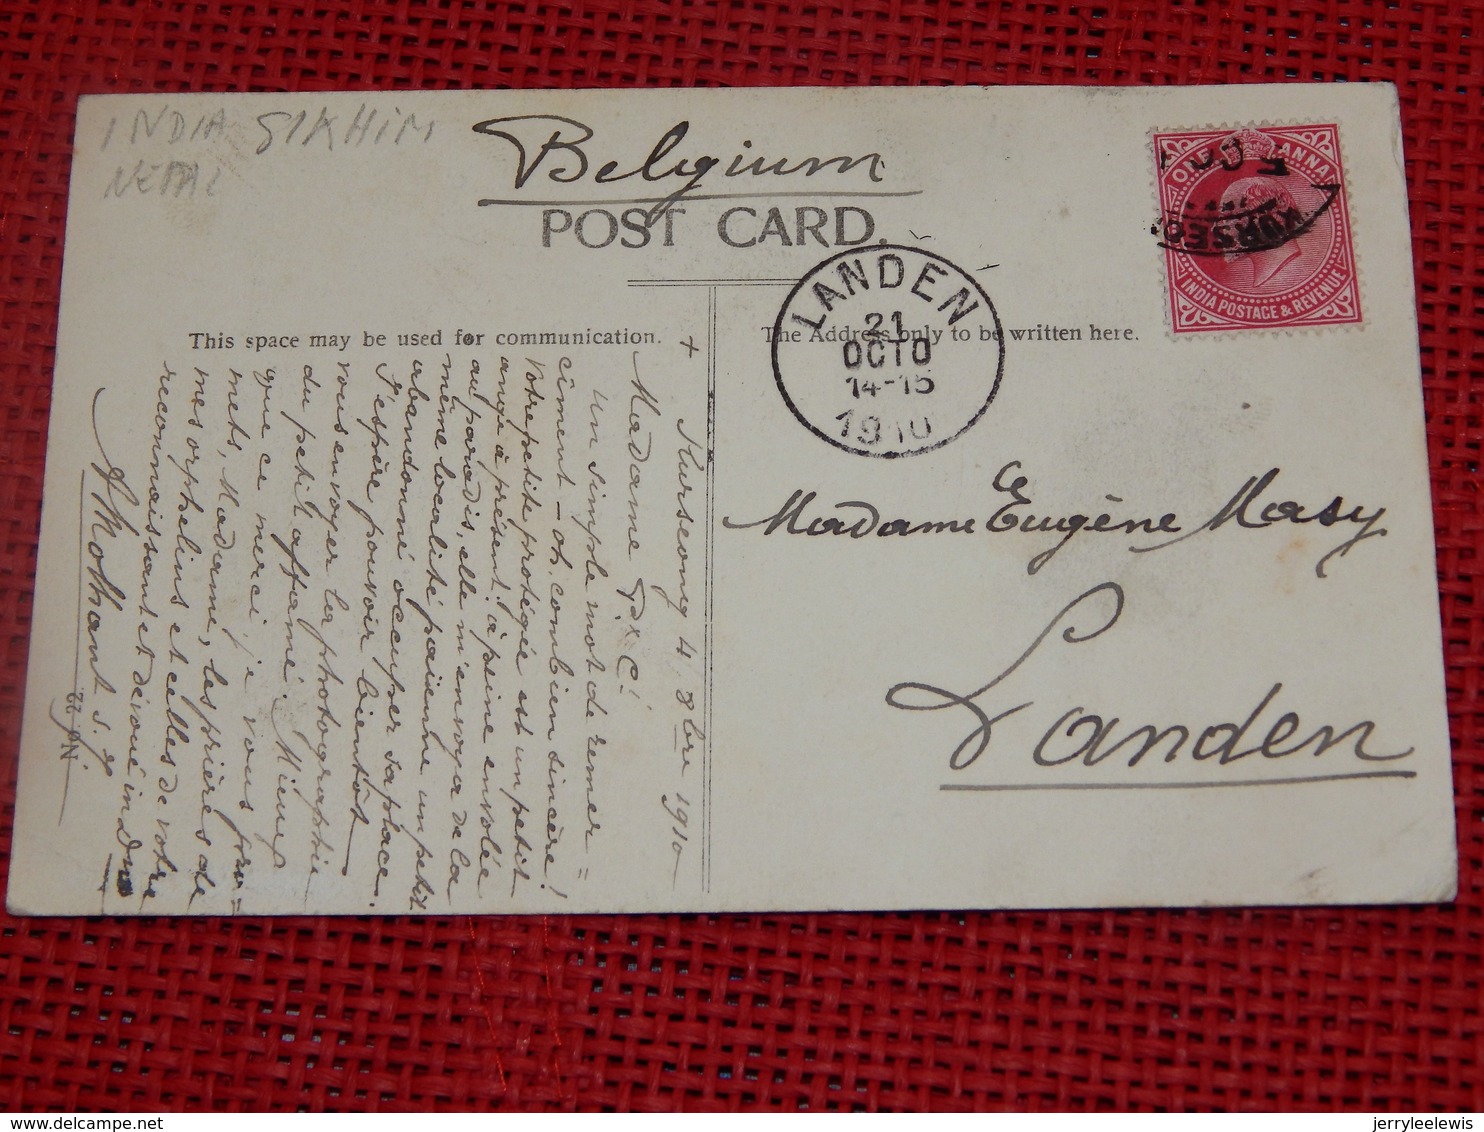 INDIA SIKHIM
NEPAL
Belgium
POST CARD.
This space may be used for communication.
The Address only to be written here.
LANDEN
21
OCTO
14-15
1910
ANNA
INDIA POSTAGE & REVENUE
KURSEO
Madame Eugène Masy
Landen
+ Kurseong 4 8bre 1910
Madame P. C!
Un simple mot de remer=
cîment - oh, combien sincère!
Votre petite protégée est un petit
ange à présent! à peine envolée
au paradis, elle m'envoya de la
même localité païenne un petit
abandonné occuper sa place.
J'espère pouvoir bientôt
vous envoyer la photographie
du petit affamé. Mieux
que ce merci, je vous pro=
mets, Madame, les prières de
mes orphelins et celles de votre
reconnaissant et dévoué in Dno
s. j.
No 22
jerryleelewis